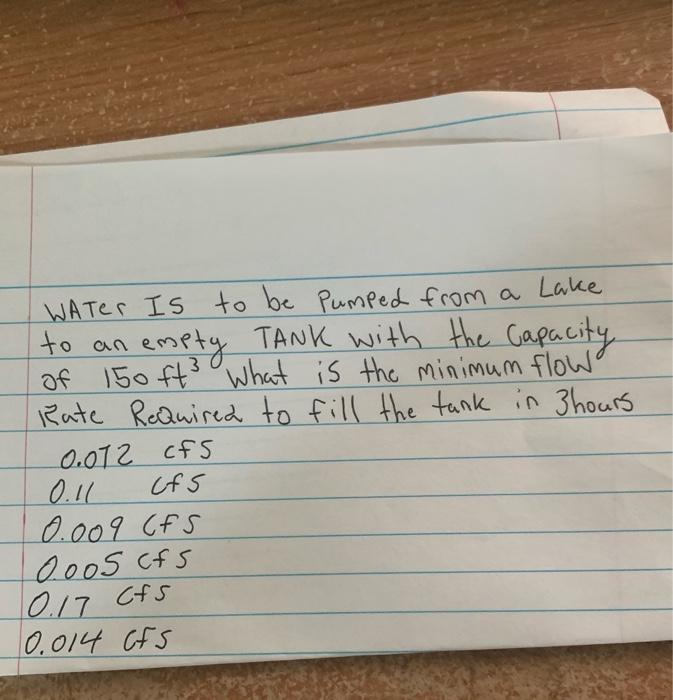 WATer IS to be Pumped from a Lake
to an empty TANK with the Capacity
of 150 ft³ What is the minimum flow
Rate Required to fill the tank in 3hours
0.072 cfs
0.11 cfs
0.009 cfs
0.005 cfs
0.17 cfs
0.014 cfs